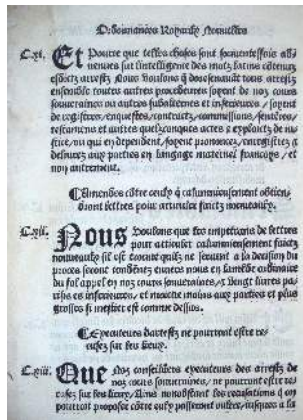 Ordonnances Royaulx Nouuelles
C.xi. Et Pource que telles choses sont souuenteffois ad-
uenues sur lintelligence des motz latins côtenuz
esdictz arrestz Nous voulons q doresenauãt tous arrestz
ensemble toutes autres procedeures soyent de noz cours
souueraines ou autres subalternes et inferieures / soyent
de registres / enquestes / contractz / commissions / sentẽces /
testamens et autres quelzcõques actes z exploictz de iu-
stice / ou qui en dependent / soyent prononcez / enregistrez z
deliurez aux parties en langage maternel francoys / et
non autrement.
Amendes côtre ceulx q calumnieusement obtien-
dront lettres pour articuler faictz nouueaulx.
C.xii. Nous Voulons que les impetrans de lettres
pour articuler calumnieusement faictz
nouueaulx sil est trouue quilz ne seruent a la decision du
proces seront condẽnez enuers nous en lamẽde ordinaire
du fol appel en noz cours souueraines / z vingt liures pa-
risis es inferieures / et moictie moins aux parties et plus
grosse si mestier est comme dessus.
Executeurs darrestz ne pourront estre re-
cusez sur les lieux.
C.xiii. Que Noz conseilliers executeurs des arrestz de
noz cours souueraines / ne pourront estre re-
cusez sur les lieux / Ains nonobstant les recusations q on
pourroit proposer côtre eulx passeront oultre / iusques a la